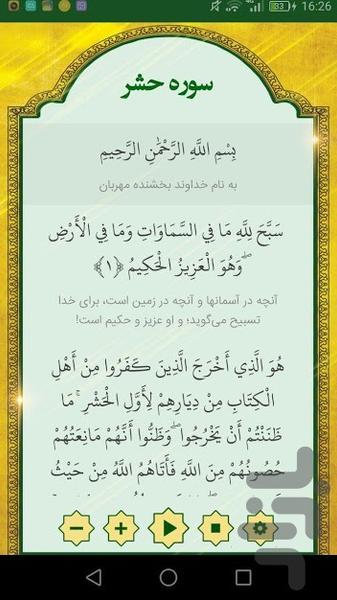 83 16:26
سوره حشر
بِسْمِ اللَّهِ الرَّحْمَٰنِ الرَّحِيمِ
به نام خداوند بخشنده مهربان
سَبَّحَ لِلَّهِ مَا فِي السَّمَاوَاتِ وَمَا فِي الْأَرْضِ
ۖ وَهُوَ الْعَزِيزُ الْحَكِيمُ ﴿١﴾
آنچه در آسمانها و آنچه در زمین است، برای خدا
تسبیح می‌گوید؛ و او عزیز و حکیم است!
هُوَ الَّذِي أَخْرَجَ الَّذِينَ كَفَرُوا مِنْ أَهْلِ
الْكِتَابِ مِنْ دِيَارِهِمْ لِأَوَّلِ الْحَشْرِ ۚ مَا
ظَنَنْتُمْ أَنْ يَخْرُجُوا ۖ وَظَنُّوا أَنَّهُمْ مَانِعَتُهُمْ
حُصُونُهُمْ مِنَ اللَّهِ فَأَتَاهُمُ اللَّهُ مِنْ حَيْثُ
بازار